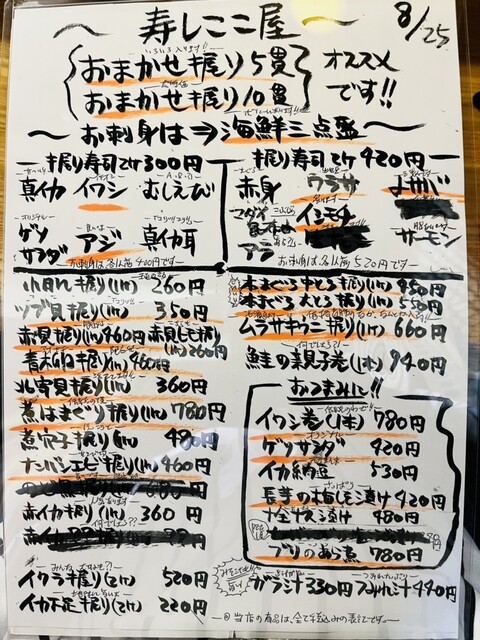 〜 寿しここ屋 〜 8/25
いろいろ入ります!!
おまかせ握り5貫
おまかせ握り10貫
オススメです!!
〜 お刺身は⇒海鮮三点盛 〜
握り寿司2ケ300円
真イカ イワシ むしえび
ゲソサラダ アジ 真イカ耳
お刺身は各人前400円です
握り寿司2ケ420円
赤身 ワラサ
マダイ イシモチ
アラ サーモン
お刺身は各人前520円です
小肌握り(1ケ) 260円
ツブ貝握り(1ケ) 350円
赤貝握り(1ケ)460円 赤貝ヒモ握り(1ケ)260円
青柳握り(1ケ)460円
北寄貝握り(1ケ) 360円
煮はまぐり握り(1ケ) 780円
煮穴子握り(1ケ) 480円
ナンバンエビ握り(1ケ)460円
赤イカ握り(1ケ) 360円
イクラ握り(2ケ) 520円
イカ不足握り(2ケ) 220円
本まぐろ中とろ握り(1ケ) 450円
本まぐろ大とろ握り(1ケ) 550円
ムラサキウニ握り(1ケ) 660円
何でしょう?!
鮭の親子巻(1本) 940円
おつまみに!!
イワシ巻(1本) 780円
ゲソサラダ 420円
イカ納豆 530円
さっぱり
長芋の梅しそ漬け 420円
480円
ブリのあら煮 780円
ガラ汁330円 つみれ汁490円
当店の商品は、全て税込みの表示です